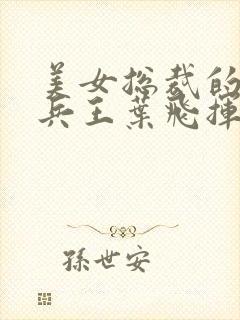 美女总裁的
兵王葉飛揮
孫世安